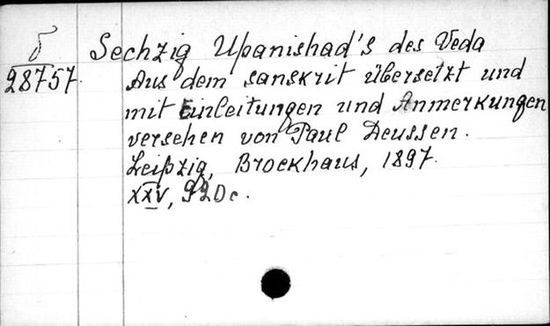 Б
28757
Sechzig Upanishad's des Veda
Aus dem sanskrit übersetzt und
mit Einleitungen und Anmerkungen
versehen von Paul Deussen.
Leipzig, Brockhaus, 1897.
XXV, 920c.